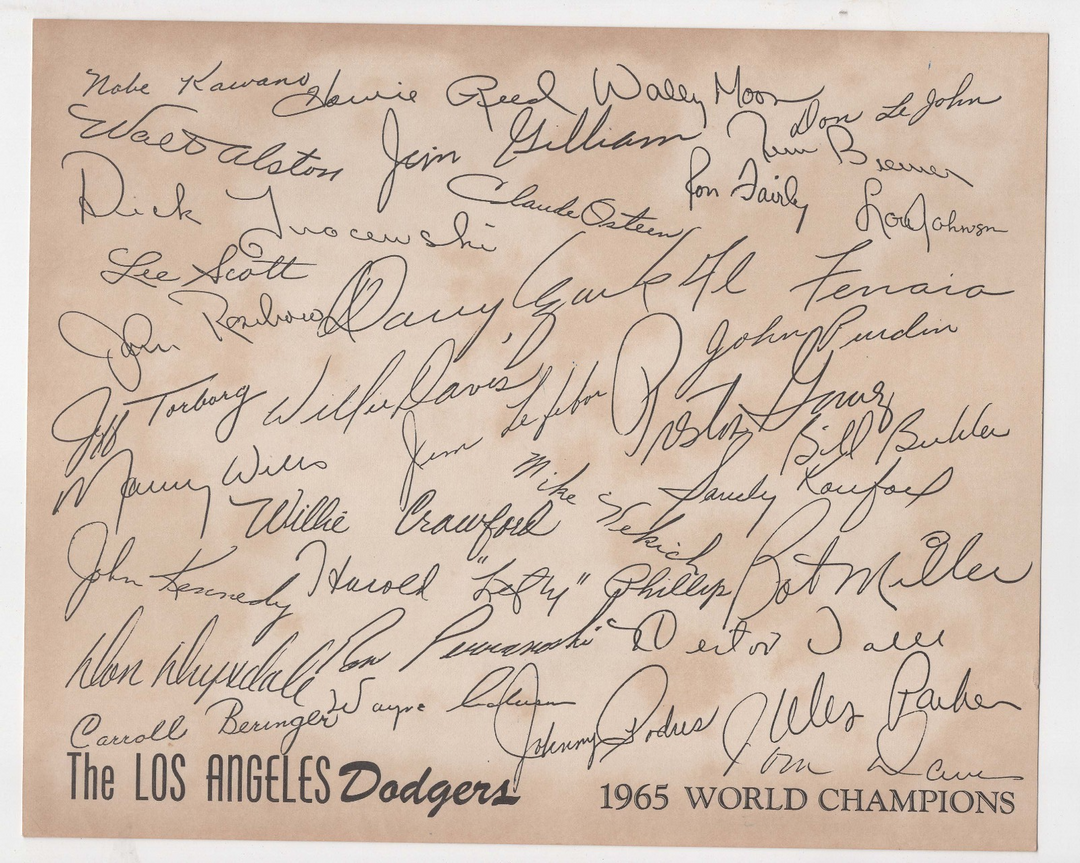 Nobe Kawano Howie Reed Wally Moon Don LeJohn
Walt Alston Jim Gilliam
Ron Fairly Lou Johnson
Dick Tracewski Claude Osteen
Lee Scott
John Roseboro Al Ferrara
John Purdin
Jeff Torborg Willie Davis Jim Lefebvre Preston Gomez
Bill Buhler
Maury Wills Mike Kekich Sandy Koufax
Willie Crawford
John Kennedy Harold "Lefty" Phillips Bob Miller
Don Drysdale Ron Perranoski
Carroll Beringer Wayne Johnny Podres Wes Parker
Tom Davis
The LOS ANGELES Dodgers 1965 WORLD CHAMPIONS